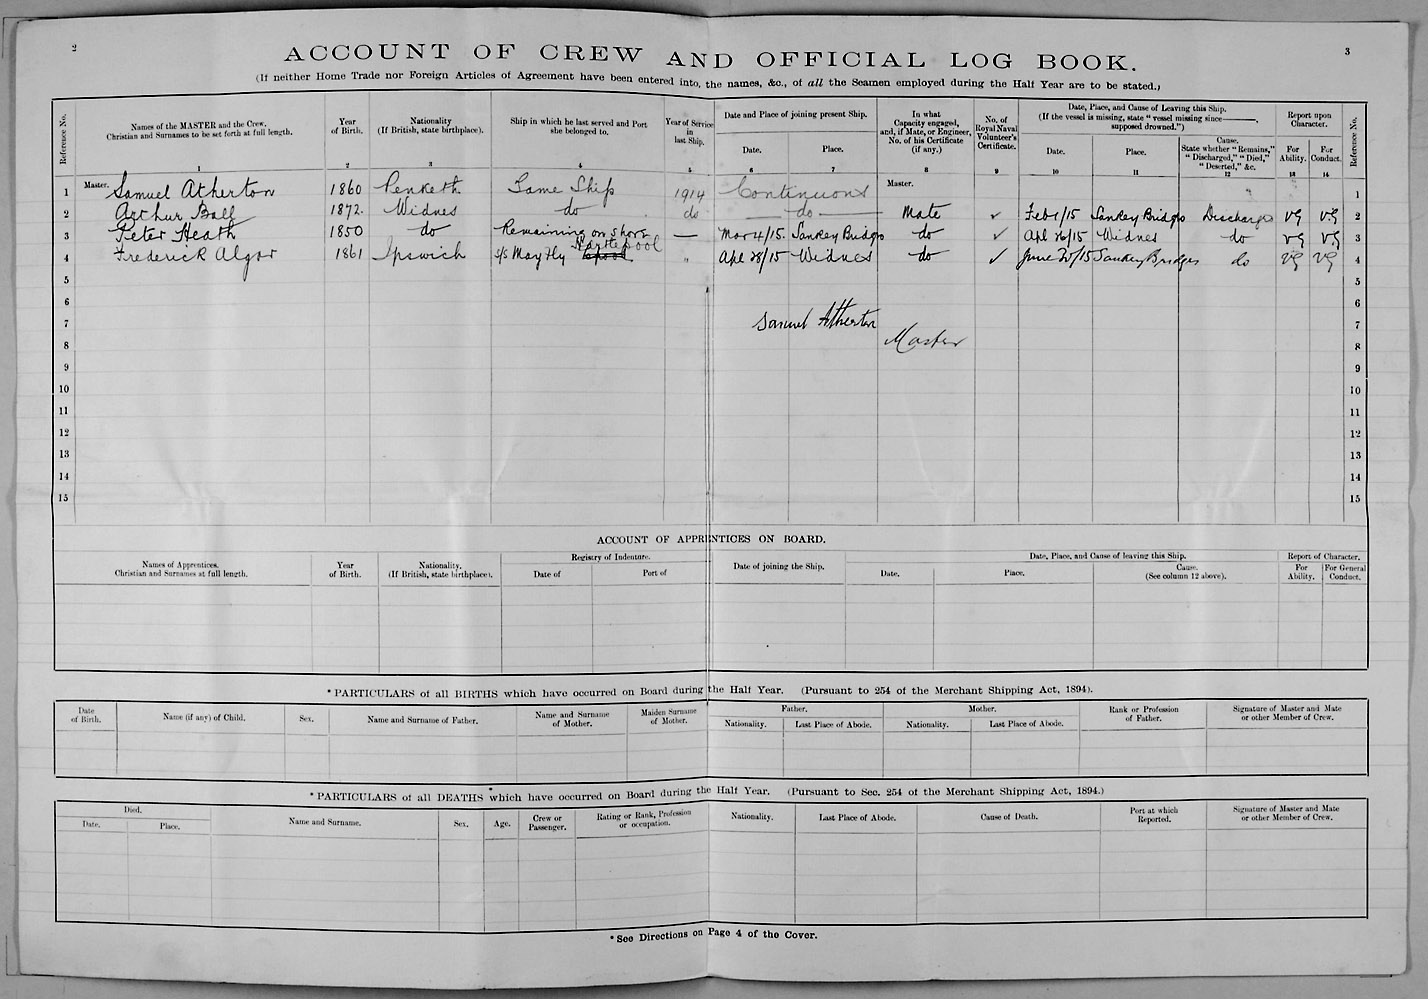 2
3
ACCOUNT OF CREW AND OFFICIAL LOG BOOK.
(If neither Home Trade nor Foreign Articles of Agreement have been entered into, the names, &c., of all the Seamen employed during the Half Year are to be stated.)
Reference No.
Names of the MASTER and the Crew. Christian and Surnames to be set forth at full length.
Year of Birth.
Nationality (If British, state birthplace).
Ship in which he last served and Port she belonged to.
Year of Service in last Ship.
Date and Place of joining present Ship.
Date. Place.
In what Capacity engaged, and, if Mate, or Engineer, No. of his Certificate (if any.)
No. of Royal Naval Volunteer's Certificate.
Date, Place, and Cause of Leaving this Ship.
(If the vessel is missing, state "vessel missing since ———, supposed drowned.")
Date. Place.
Cause. State whether "Remains," "Discharged," "Died," "Deserted," &c.
Report upon Character.
For Ability. For Conduct.
Reference No.
1 2 3 4 5 6 7 8 9 10 11 12 13 14
1 Master. Samuel Atherton 1860 Penketh Same Ship 1914 Continuous Master. 1
2 Arthur Ball 1872. Widnes do do — do — Mate ✓ Feb 1/15 Sankey Bridges Discharged VG VG 2
3 Peter Heath 1850 do Remaining on Shore — Mar 4/15. Sankey Bridges do ✓ Apl 26/15 Widnes do VG VG 3
4 Frederick Algar 1861 Ipswich S/S May Fly Hartlepool " Apl 28/15 Widnes do ✓ June 20/15 Sankey Bridges do VG VG 4
5 5
6 6
7 Samuel Atherton 7
8 Master 8
9 9
10 10
11 11
12 12
13 13
14 14
15 15
ACCOUNT OF APPRENTICES ON BOARD.
Names of Apprentices. Christian and Surnames at full length.
Year of Birth.
Nationality. (If British, state birthplace).
Registry of Indenture.
Date of Port of
Date of joining the Ship.
Date, Place, and Cause of leaving this Ship.
Date. Place. Cause. (See column 12 above).
Report of Character.
For Ability. For General Conduct.
*PARTICULARS of all BIRTHS which have occurred on Board during the Half Year. (Pursuant to 254 of the Merchant Shipping Act, 1894).
Date of Birth.
Name (if any) of Child.
Sex.
Name and Surname of Father.
Name and Surname of Mother.
Maiden Surname of Mother.
Father.
Nationality. Last Place of Abode.
Mother.
Nationality. Last Place of Abode.
Rank or Profession of Father.
Signature of Master and Mate or other Member of Crew.
*PARTICULARS of all DEATHS which have occurred on Board during the Half Year. (Pursuant to Sec. 254 of the Merchant Shipping Act, 1894.)
Died.
Date. Place.
Name and Surname.
Sex.
Age.
Crew or Passenger.
Rating or Rank, Profession or occupation.
Nationality.
Last Place of Abode.
Cause of Death.
Port at which Reported.
Signature of Master and Mate or other Member of Crew.
*See Directions on Page 4 of the Cover.